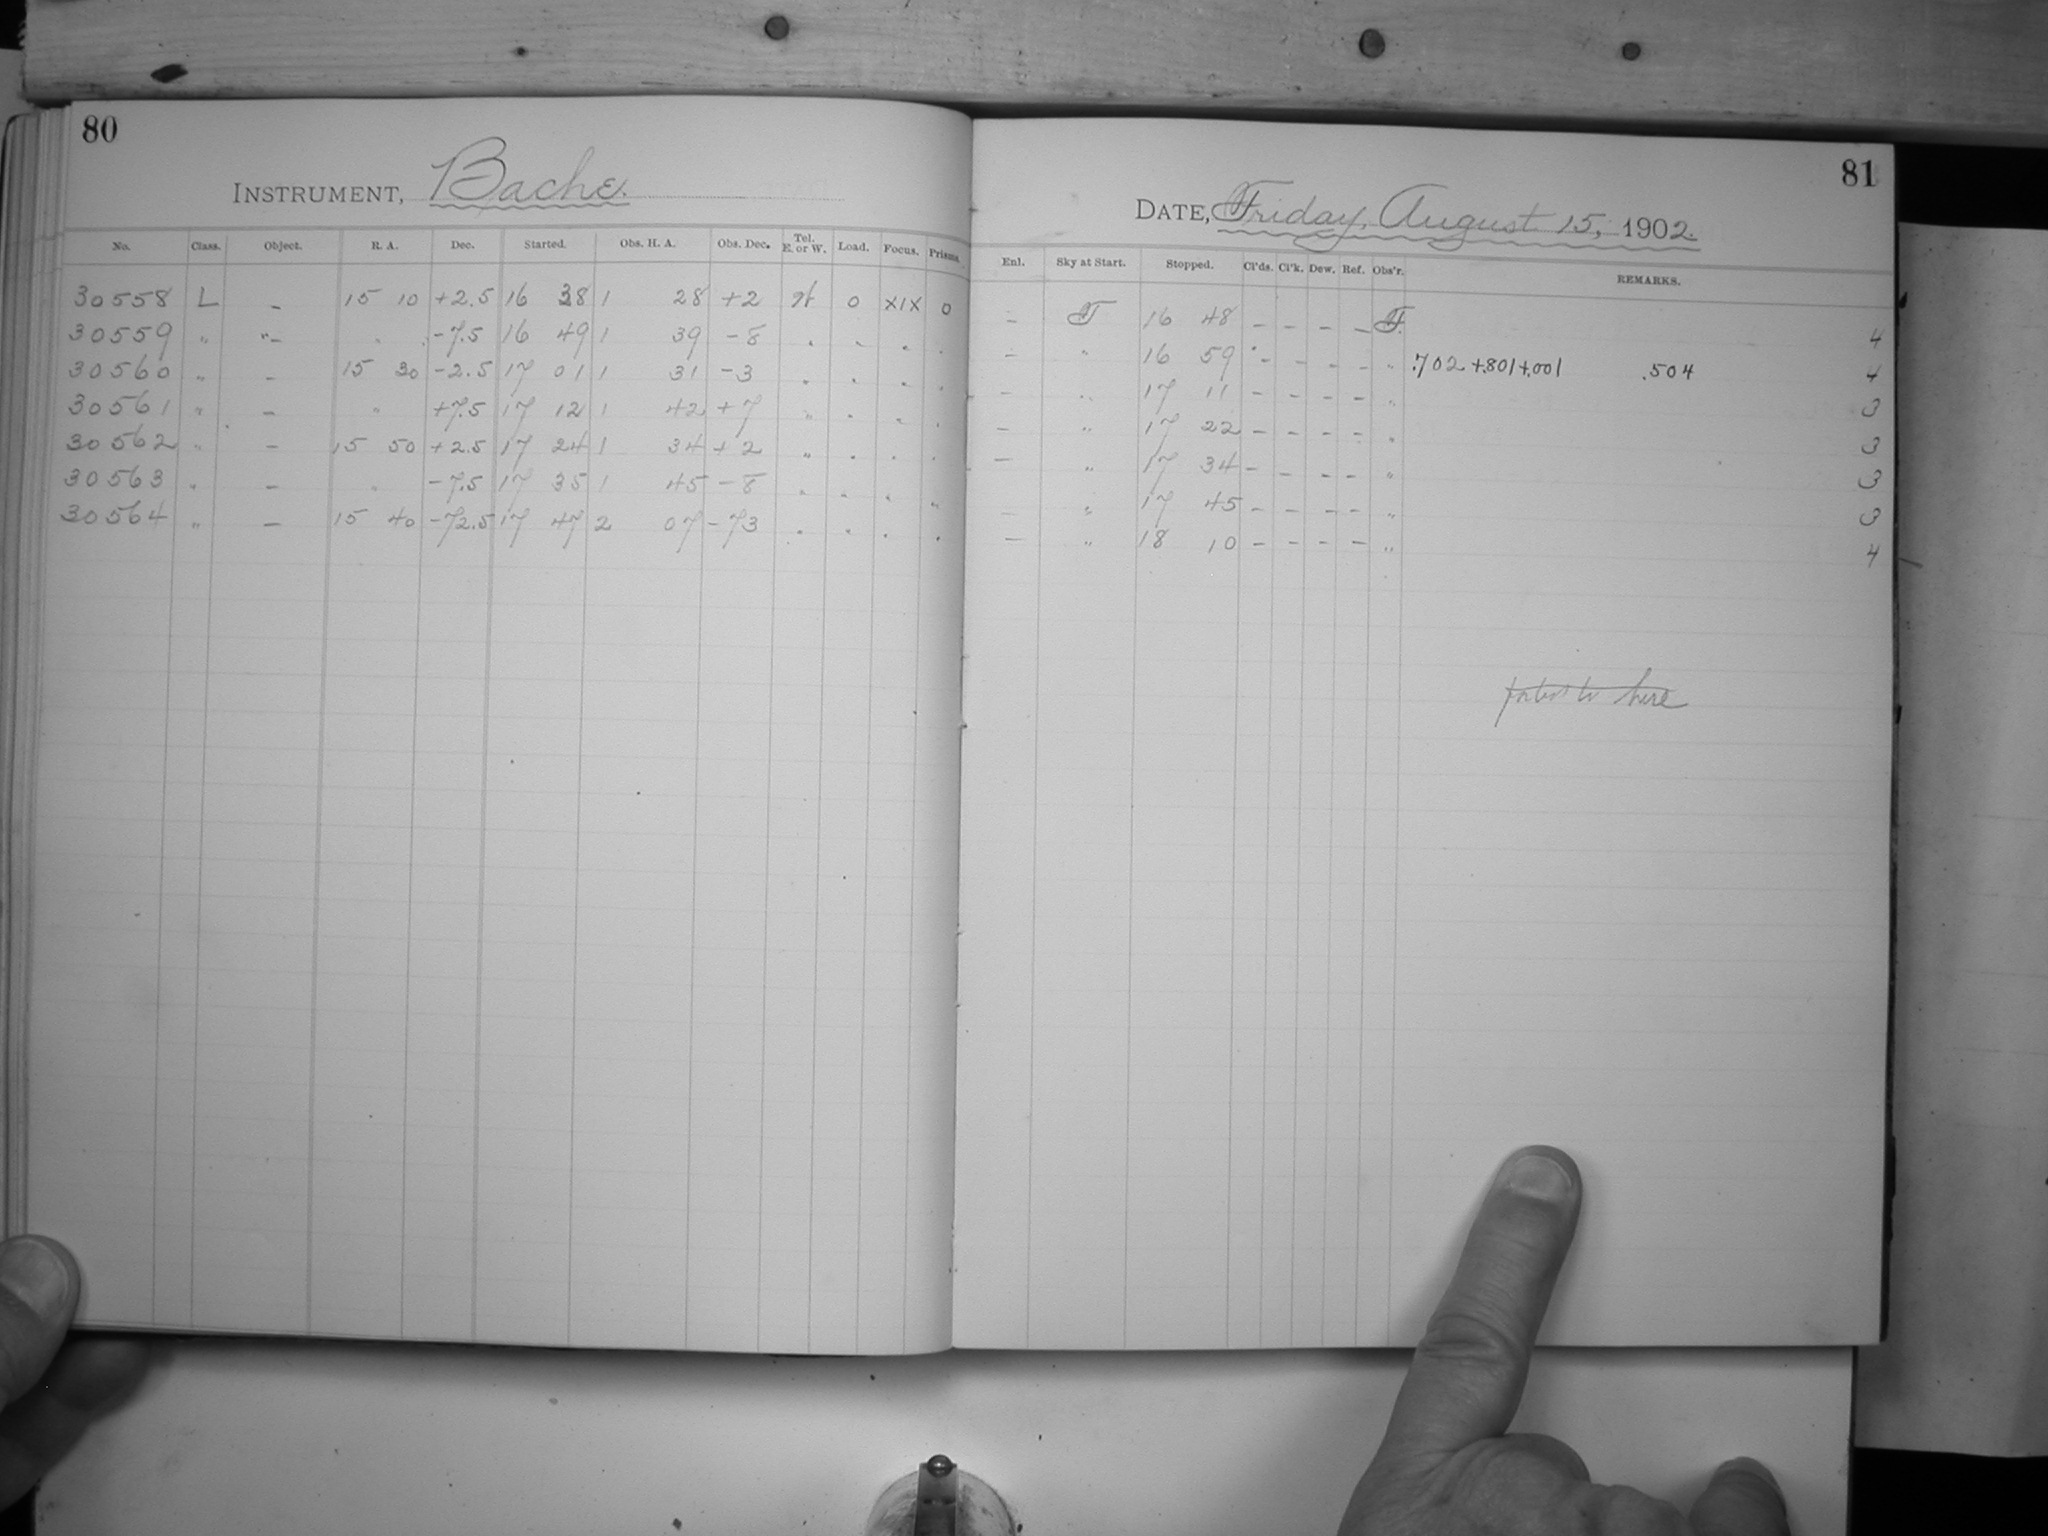 80
INSTRUMENT, Bache.
No. Class. Object. R. A. Dec. Started. Obs. H. A. Obs. Dec. Tel. E. or W. Load. Focus. Prisms.
30558 L – 15 10 +2.5 16 38 1 28 +2 W 0 XIX 0
30559 " "– " -7.5 16 49 1 39 -8 " " " "
30560 " – 15 30 -2.5 17 01 1 31 -3 " " " "
30561 " – " +7.5 17 12 1 42 +7 " " " "
30562 " – 15 50 +2.5 17 24 1 34 +2 " " " "
30563 " – " -7.5 17 35 1 45 -8 " " " "
30564 " – 15 40 -72.5 17 47 2 07 -73 " " " "
81
DATE, Friday, August 15, 1902.
Enl. Sky at Start. Stopped. Cl'ds. Cl'k. Dew. Ref. Obs'r. REMARKS.
– F 16 48 – – – – F. 4
– " 16 59 – – – – " .702 +.801+.001 .504 4
– " 17 11 – – – – " 3
– " 17 22 – – – – " 3
– " 17 34 – – – – " 3
– " 17 45 – – – – " 3
– " 18 10 – – – – " 4
here